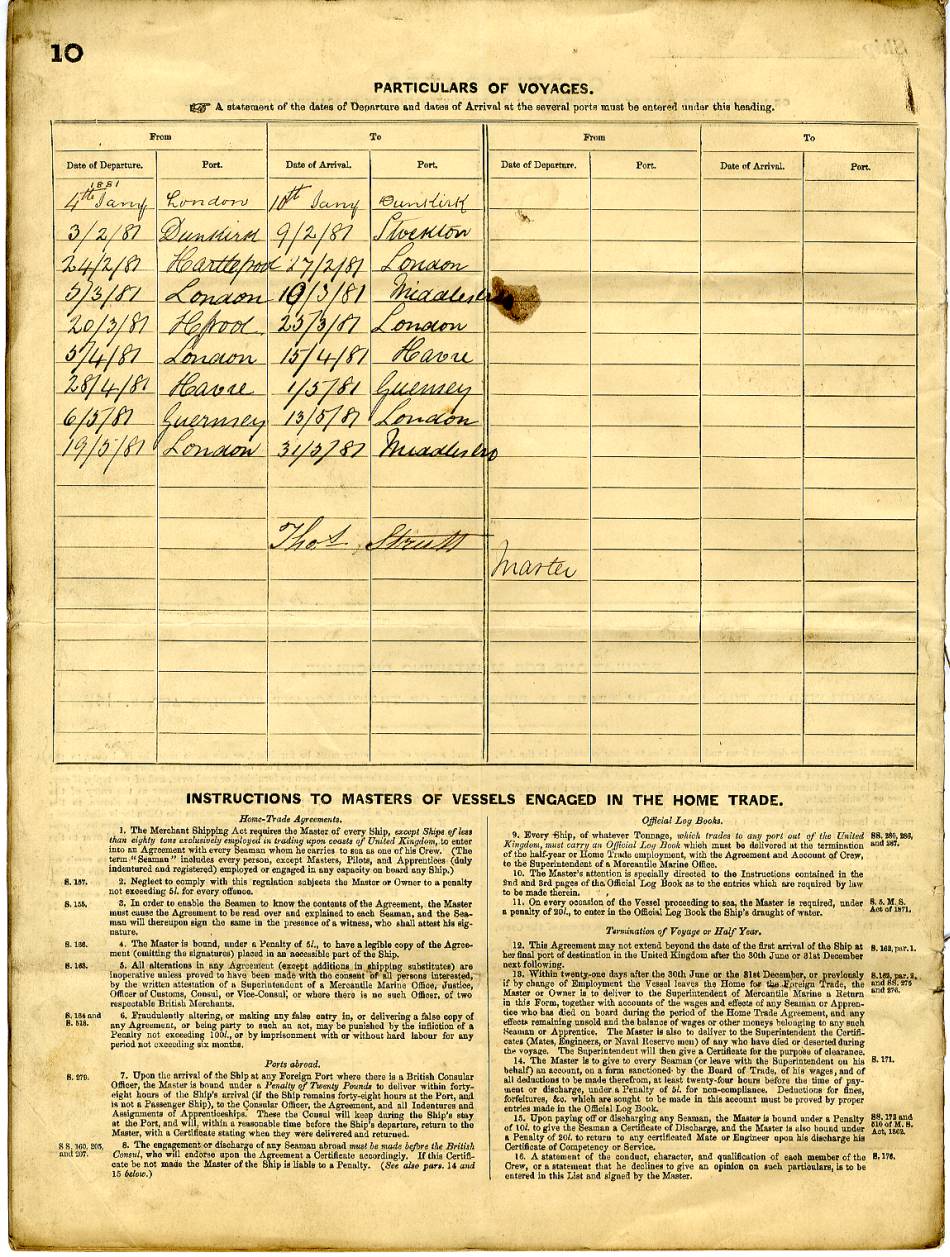 10
PARTICULARS OF VOYAGES.
☞ A statement of the dates of Departure and dates of Arrival at the several ports must be entered under this heading.
From To From To
Date of Departure. Port. Date of Arrival. Port. Date of Departure. Port. Date of Arrival. Port.
1881
4th Jany London 10th Jany Dunkirk
3/2/81 Dunkirk 9/2/81 Stockton
24/2/81 Hartlepool 27/2/81 London
5/3/81 London 19/3/81 Middlesbro
20/3/81 Hpool 25/3/81 London
5/4/81 London 15/4/81 Havre
28/4/81 Havre 1/5/81 Guernsey
6/5/81 Guernsey 13/5/81 London
19/5/81 London 31/5/81 Middlesbro
Thos Strutt
Master
INSTRUCTIONS TO MASTERS OF VESSELS ENGAGED IN THE HOME TRADE.
Home-Trade Agreements.
1. The Merchant Shipping Act requires the Master of every Ship, except Ships of less
than eighty tons exclusively employed in trading upon coasts of United Kingdom, to enter
into an Agreement with every Seaman whom he carries to sea as one of his Crew. (The
term "Seaman" includes every person, except Masters, Pilots, and Apprentices (duly
indentured and registered) employed or engaged in any capacity on board any Ship.)
S. 157. 2. Neglect to comply with this regulation subjects the Master or Owner to a penalty
not exceeding 5l. for every offence.
S. 155. 3. In order to enable the Seamen to know the contents of the Agreement, the Master
must cause the Agreement to be read over and explained to each Seaman, and the Sea-
man will thereupon sign the same in the presence of a witness, who shall attest his sig-
nature.
S. 166. 4. The Master is bound, under a Penalty of 5l., to have a legible copy of the Agree-
ment (omitting the signatures) placed in an accessible part of the Ship.
S. 163. 5. All alterations in any Agreement (except additions in shipping substitutes) are
inoperative unless proved to have been made with the consent of all persons interested,
by the written attestation of a Superintendent of a Mercantile Marine Office, Justice,
Officer of Customs, Consul, or Vice-Consul; or where there is no such Officer, of two
respectable British Merchants.
S. 164 and S. 518. 6. Fraudulently altering, or making any false entry in, or delivering a false copy of
any Agreement, or being party to such an act, may be punished by the infliction of a
Penalty not exceeding 100l., or by imprisonment with or without hard labour for any
period not exceeding six months.
Ports abroad.
S. 279. 7. Upon the arrival of the Ship at any Foreign Port where there is a British Consular
Officer, the Master is bound under a Penalty of Twenty Pounds to deliver within forty-
eight hours of the Ship's arrival (if the Ship remains forty-eight hours at the Port, and
is not a Passenger Ship), to the Consular Officer, the Agreement, and all Indentures and
Assignments of Apprenticeships. These the Consul will keep during the Ship's stay
at the Port, and will, within a reasonable time before the Ship's departure, return to the
Master, with a Certificate stating when they were delivered and returned.
SS. 160, 205, and 207. 8. The engagement or discharge of any Seaman abroad must be made before the British
Consul, who will endorse upon the Agreement a Certificate accordingly. If this Certifi-
cate be not made the Master of the Ship is liable to a Penalty. (See also pars. 14 and
15 below.)
Official Log Books.
9. Every Ship, of whatever Tonnage, which trades to any port out of the United SS. 280, 286,
Kingdom, must carry an Official Log Book which must be delivered at the termination and 287.
of the half-year or Home Trade employment, with the Agreement and Account of Crew,
to the Superintendent of a Mercantile Marine Office.
10. The Master's attention is specially directed to the Instructions contained in the
2nd and 3rd pages of the Official Log Book as to the entries which are required by law
to be made therein.
11. On every occasion of the Vessel proceeding to sea, the Master is required, under S. 5. M. S.
a penalty of 20l., to enter in the Official Log Book the Ship's draught of water. Act of 1871.
Termination of Voyage or Half Year.
12. This Agreement may not extend beyond the date of the first arrival of the Ship at S. 162, par. 1.
her final port of destination in the United Kingdom after the 30th June or 31st December
next following.
13. Within twenty-one days after the 30th June or the 31st December, or previously S. 162, par. 2,
if by change of Employment the Vessel leaves the Home for the Foreign Trade, the and SS. 275
Master or Owner is to deliver to the Superintendent of Mercantile Marine a Return and 276.
in this Form, together with accounts of the wages and effects of any Seaman or Appren-
tice who has died on board during the period of the Home Trade Agreement, and any
effects remaining unsold and the balance of wages or other moneys belonging to any such
Seaman or Apprentice. The Master is also to deliver to the Superintendent the Certifi-
cates (Mates, Engineers, or Naval Reserve men) of any who have died or deserted during
the voyage. The Superintendent will then give a Certificate for the purpose of clearance.
14. The Master is to give to every Seaman (or leave with the Superintendent on his S. 171.
behalf) an account, on a form sanctioned by the Board of Trade, of his wages, and of
all deductions to be made therefrom, at least twenty-four hours before the time of pay-
ment or discharge, under a Penalty of 5l. for non-compliance. Deductions for fines,
forfeitures, &c. which are sought to be made in this account must be proved by proper
entries made in the Official Log Book.
15. Upon paying off or discharging any Seaman, the Master is bound under a Penalty SS. 172 and
of 10l. to give the Seaman a Certificate of Discharge, and the Master is also bound under
a Penalty of 20l. to return to any certificated Mate or Engineer upon his discharge his Act, 1862.
Certificate of Competency or Service.
16. A statement of the conduct, character, and qualification of each member of the S. 176.
Crew, or a statement that he declines to give an opinion on such particulars, is to be
entered in this List and signed by the Master.